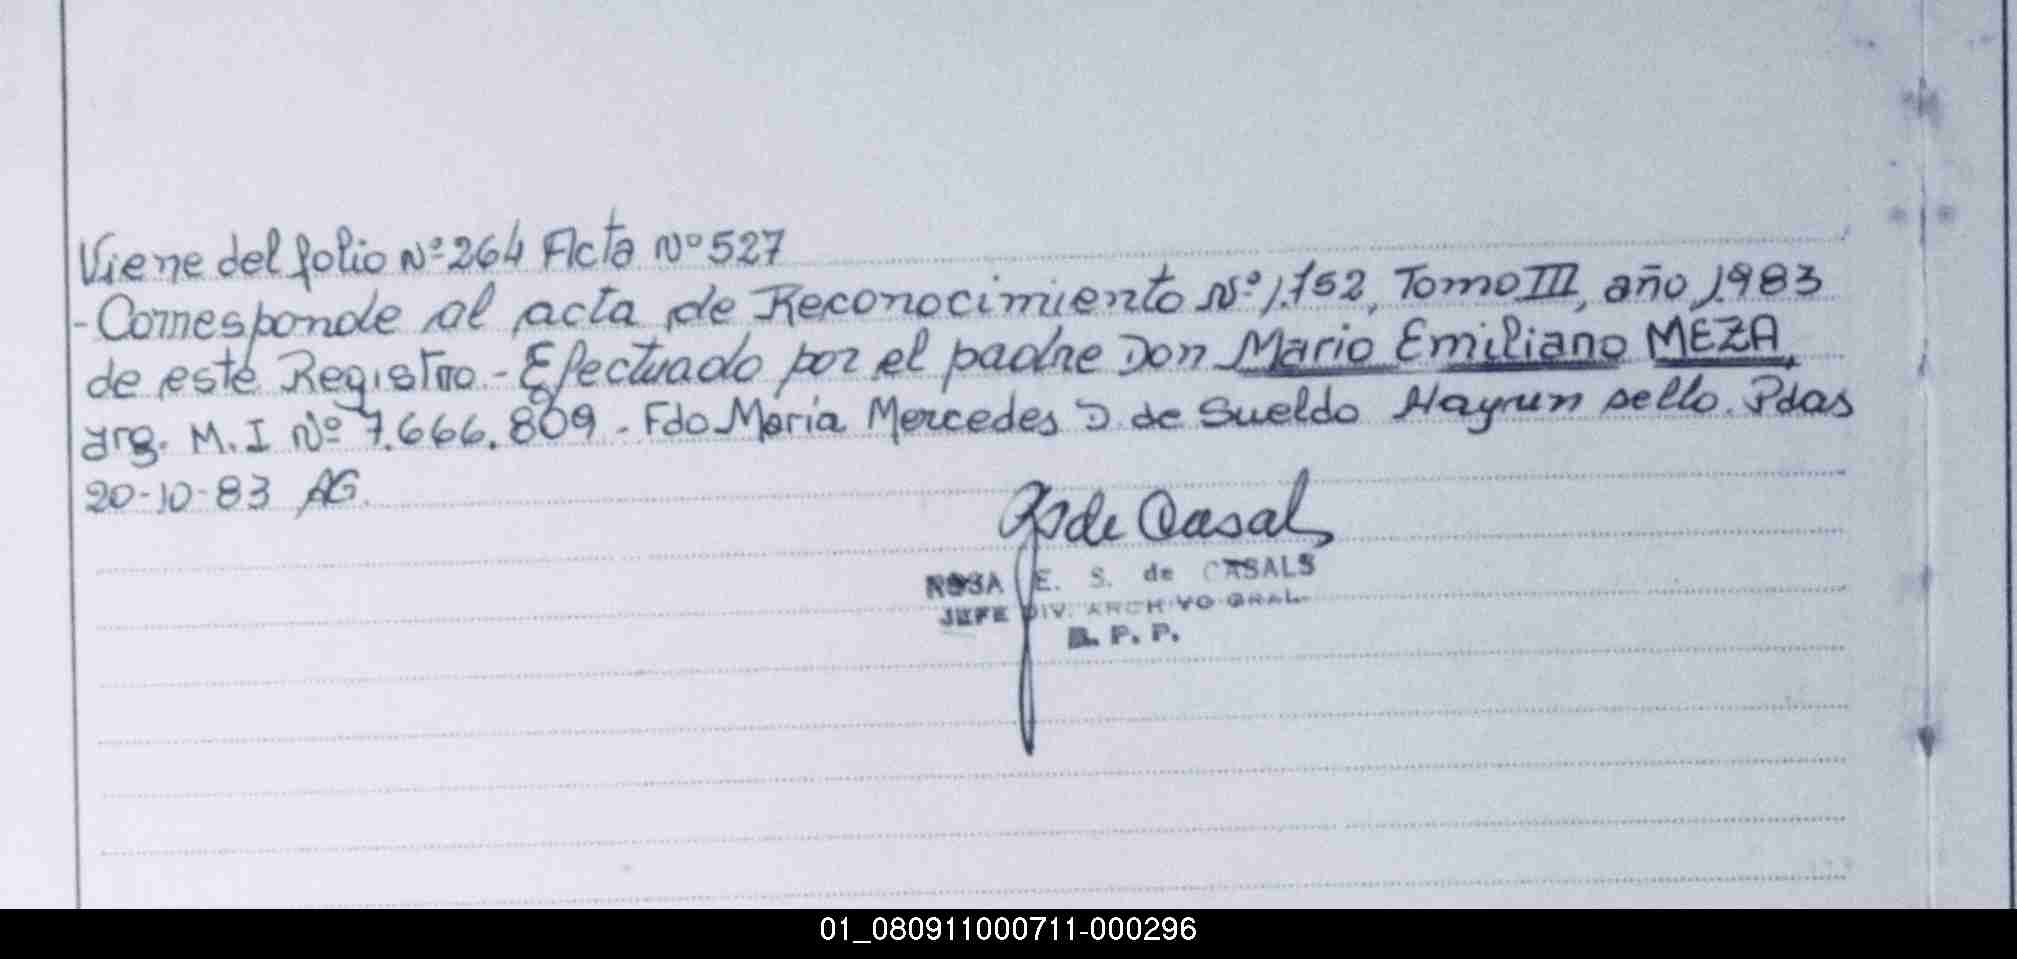 Viene del folio Nº 264 Acta Nº 527
- Corresponde al acta de Reconocimiento Nº 1.752, Tomo III, año 1983
de este Registro - Efectuado por el padre Don Mario Emiliano MEZA,
arg. M.I Nº 7.666.809 - Fdo María Mercedes D. de Sueldo Hay un sello. Pdas
20-10-83 AG.
de Casal
ROSA E. S. de CASALS
JEFE DIV. ARCHIVO GRAL.
P. P.
01_080911000711-000296